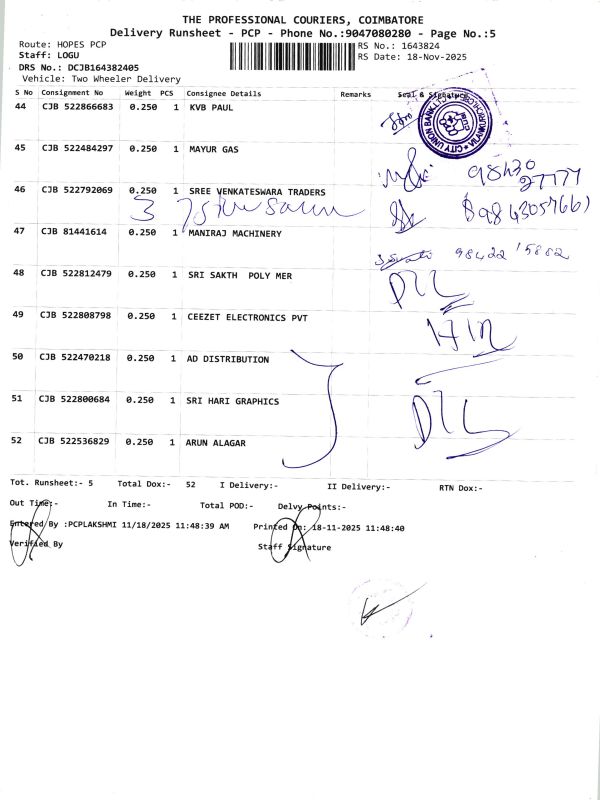 THE PROFESSIONAL COURIERS, COIMBATORE
Delivery Runsheet - PCP - Phone No.:9047080280 - Page No.:5
Route: HOPES PCP
RS No.: 1643824
Staff: LOGU
RS Date: 18-Nov-2025
DRS No.: DCJB164382405
Vehicle: Two Wheeler Delivery
S No Consignment No Weight PCS Consignee Details Remarks Seal & Signature
44 CJB 522866683 0.250 1 KVB PAUL
CITY UNION BANK LTD
45 CJB 522484297 0.250 1 MAYUR GAS
98430
27777
46 CJB 522792069 0.250 1 SREE VENKATESWARA TRADERS
3
47 CJB 81441614 0.250 1 MANIRAJ MACHINERY
98422 15882
48 CJB 522812479 0.250 1 SRI SAKTH POLY MER
49 CJB 522808798 0.250 1 CEEZET ELECTRONICS PVT
50 CJB 522470218 0.250 1 AD DISTRIBUTION
51 CJB 522800684 0.250 1 SRI HARI GRAPHICS
52 CJB 522536829 0.250 1 ARUN ALAGAR
Tot. Runsheet:- 5 Total Dox:- 52 I Delivery:- II Delivery:- RTN Dox:-
Out Time:- In Time:- Total POD:- Delvy Points:-
Entered By :PCPLAKSHMI 11/18/2025 11:48:39 AM Printed On: 18-11-2025 11:48:40
Verified By Staff Signature